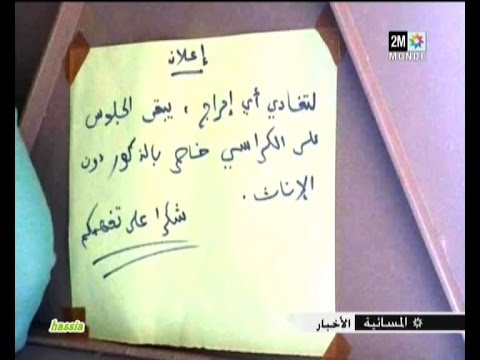 2M
MONDE
إعلان
لتفادي أي إحراج، يبقى الجلوس
على الكراسي خاص بالذكور دون
الإناث.
شكرا على تفهمكم
hassia
المسائية الأخبار